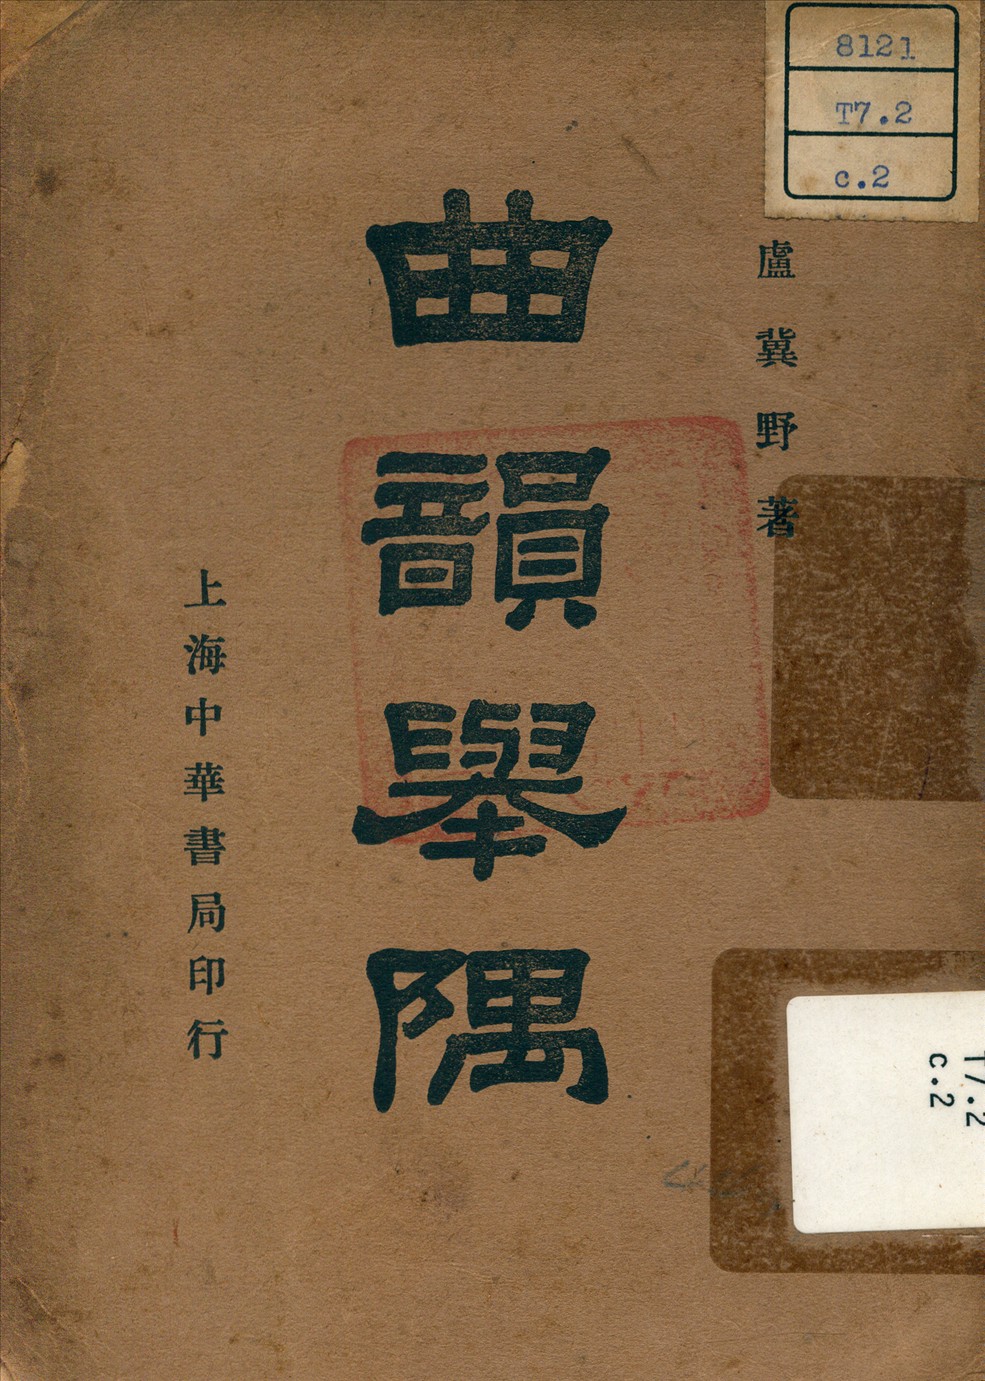 8121
T7.2
c.2
盧冀野著
曲韻舉隅
上海中華書局印行
T7.2
c.2